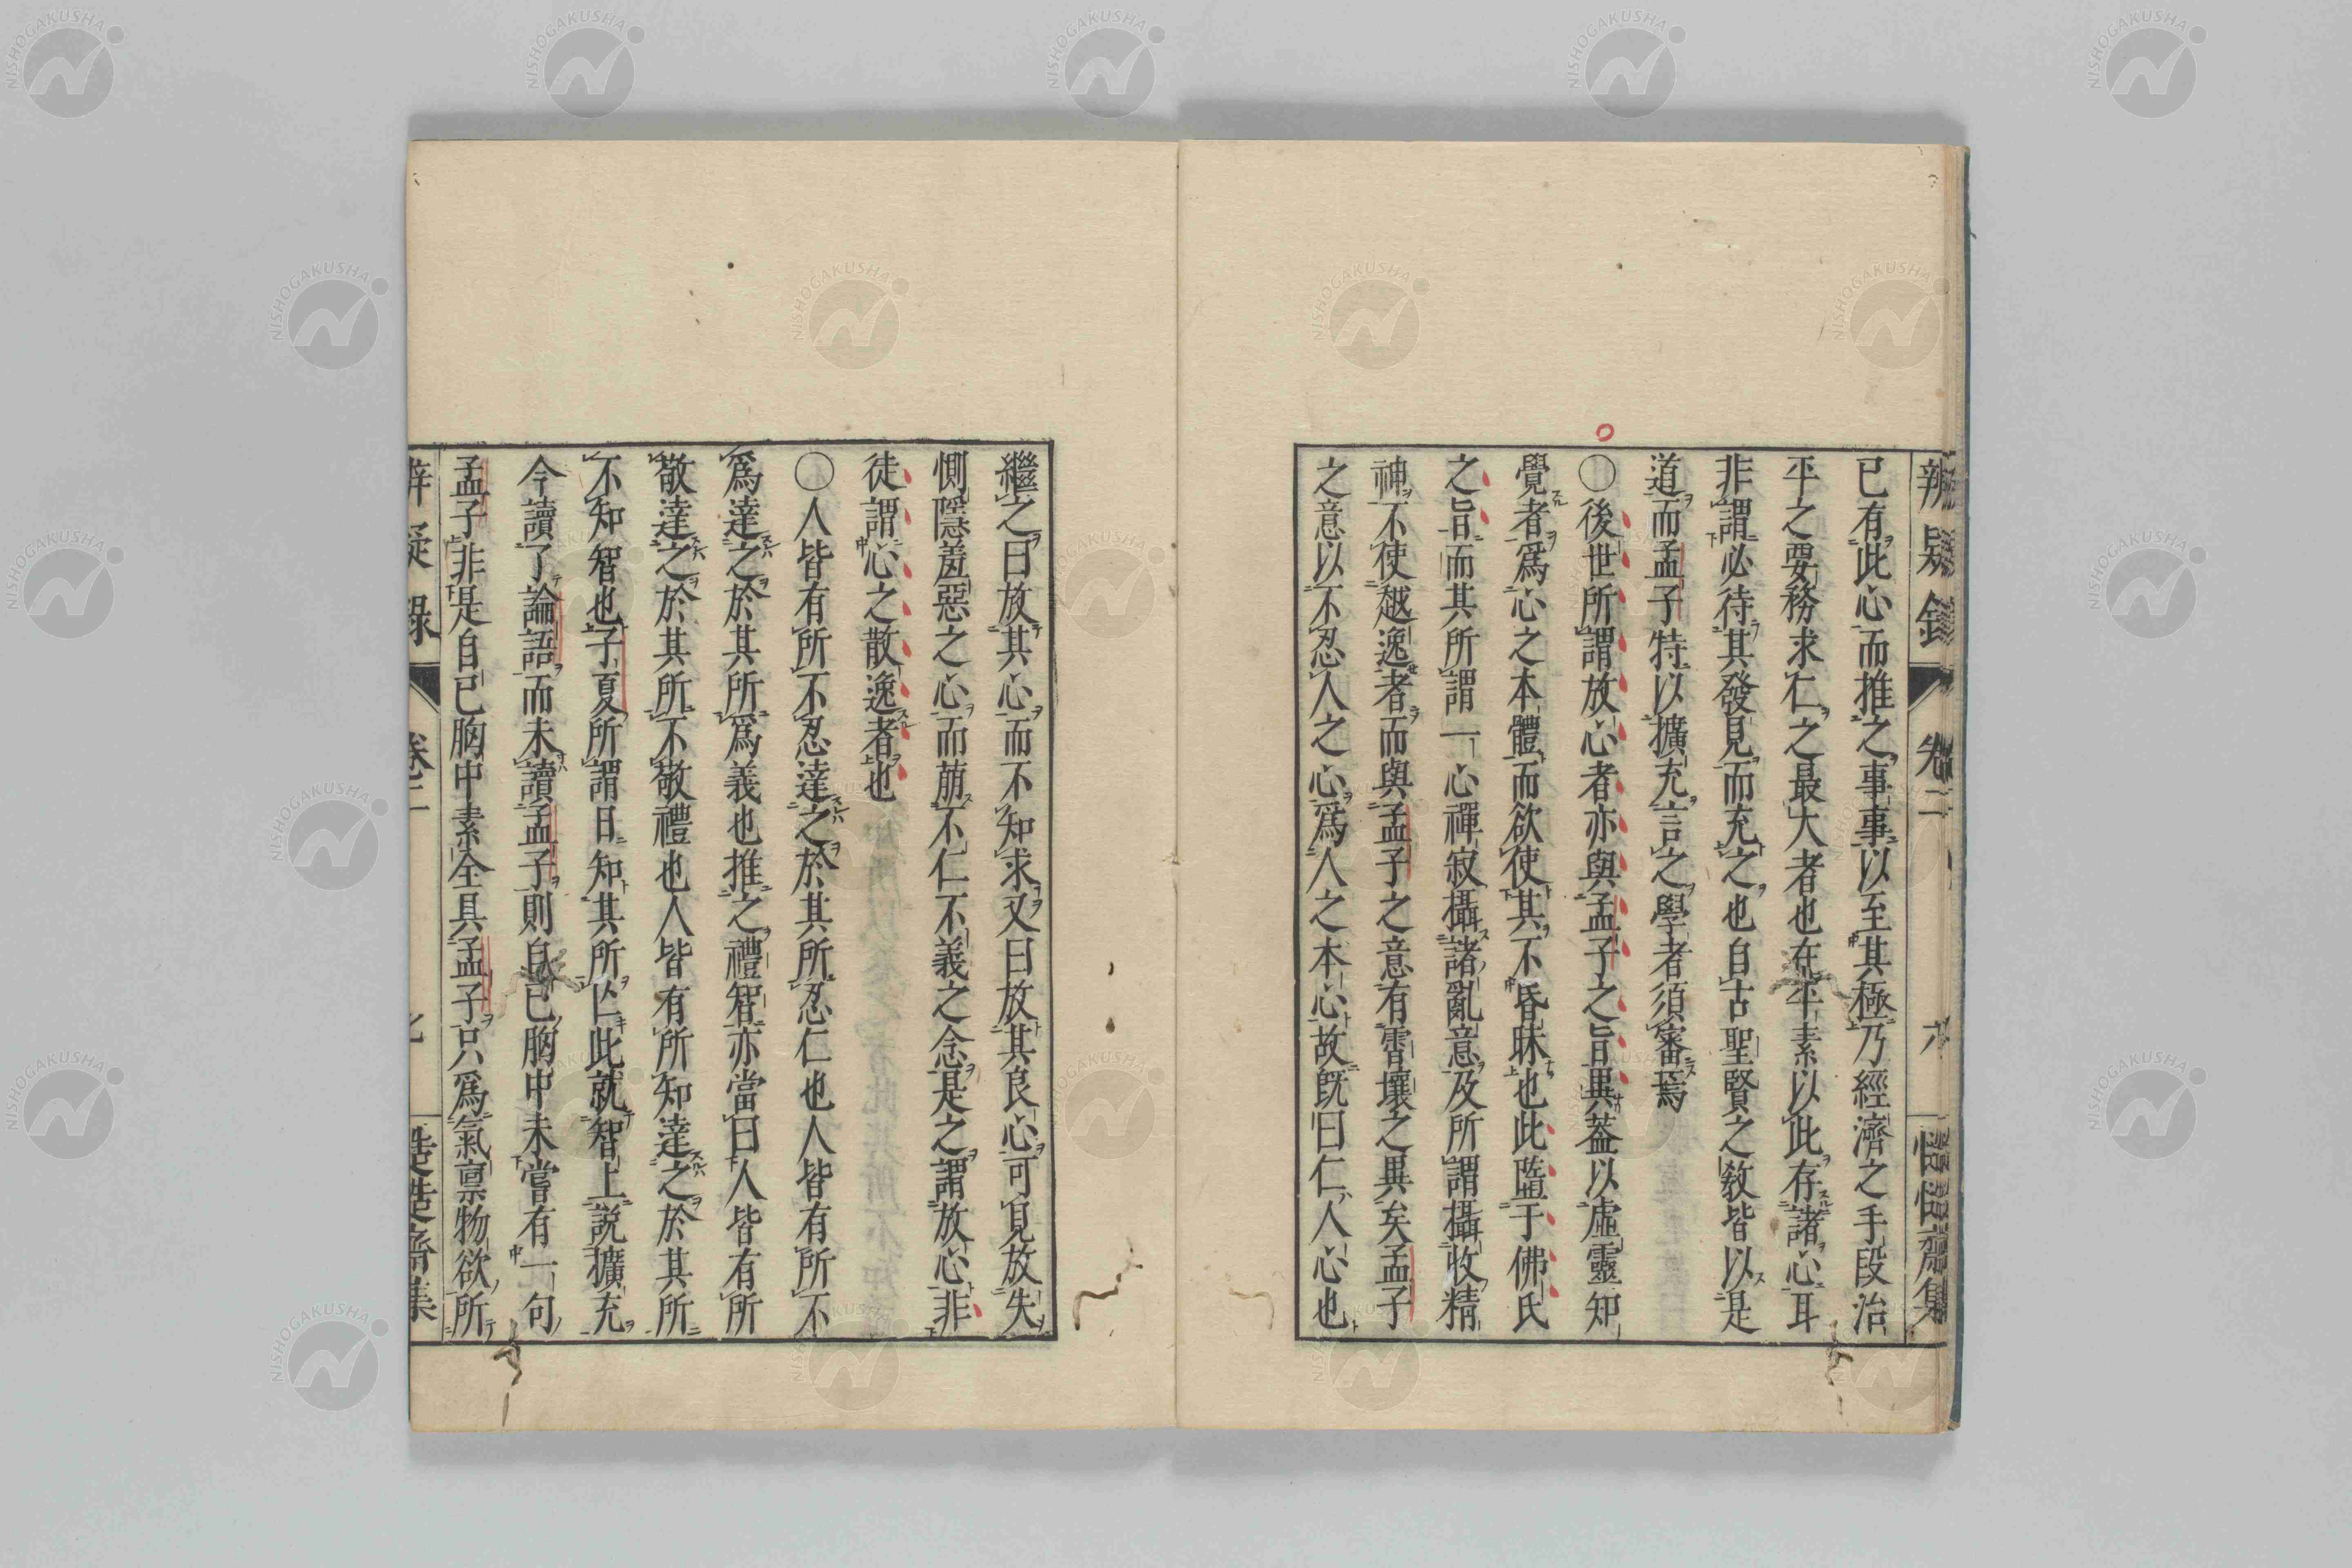 辨疑錄 卷二 六 慥慥齋集
已有此心而推之事事以至其極乃經濟之手段治
平之要務求仁之最大者也在平素以此存諸心耳
非謂必待其發見而充之也自古聖賢之教皆以是
道而孟子特以擴充言之學者須審焉
〇後世所謂放心者亦與孟子之旨異蓋以虛靈知
覺者爲心之本體而欲使其不昏昧也此蓝于佛氏
之旨而其所謂一心禪寂攝諸亂意及所謂攝收精
神不使越逸者而與孟子之意有霄壤之異矣孟子
之意以不忍人之心爲人之本心故既曰仁人心也
繼之曰放其心而不知求又曰放其良心可見放失
惻隱羞惡之心而萠不仁不義之念是之謂放心非
徒謂心之散逸者也
〇人皆有所不忍達之於其所忍仁也人皆有所不
爲達之於其所爲義也推之禮智亦當曰人皆有所
敬達之於其所不敬禮也人皆有所知達之於其所
不知智也子夏所謂日知其所亡此就智上說擴充
今讀了論語而未讀孟子則自己胸中未嘗有一句
孟子非是自己胸中素全具孟子只爲氣禀物欲所
辨疑錄 卷二 慥慥齋集
NISHOGAKUSHA